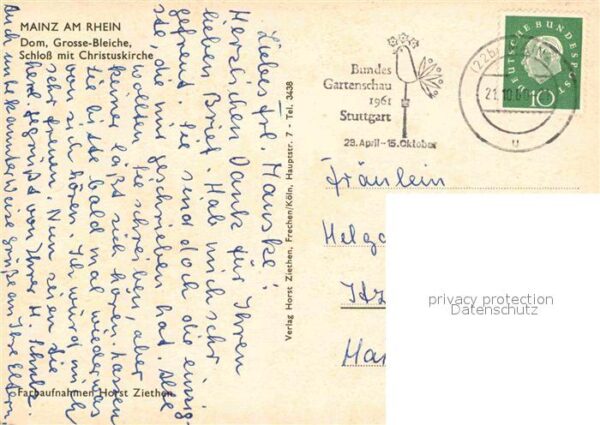 MAINZ AM RHEIN
Dom, Grosse-Bleiche,
Schloß mit Christuskirche
Liebes Frl. Mauske!
Herzlichen Dank für Ihren
lieben Brief. Hab mich sehr
gefreut. Sie sind doch die einzig-
ste, die mir geschrieben hat. Alle
wollten sie schreiben, aber
keiner läßt sich hören. Lassen
Sie bitte bald mal wieder was
von sich hören. Ich würd mich
sehr freuen. Nun seien Sie
herzl. gegrüßt von Ihrer H. Schulze
Auch unbekannterweise Grüße an Ihre Eltern.
Farbaufnahmen Horst Ziethen
Verlag Horst Ziethen, Frechen/Köln, Hauptstr. 7 - Tel. 3438
Bundes
Gartenschau
1961
Stuttgart
28. April - 15. Oktober
(22b)
21.10.60
u
DEUTSCHE BUNDESPOST
10
Fräulein
Helga
Itz
Ha
privacy protection
Datenschutz